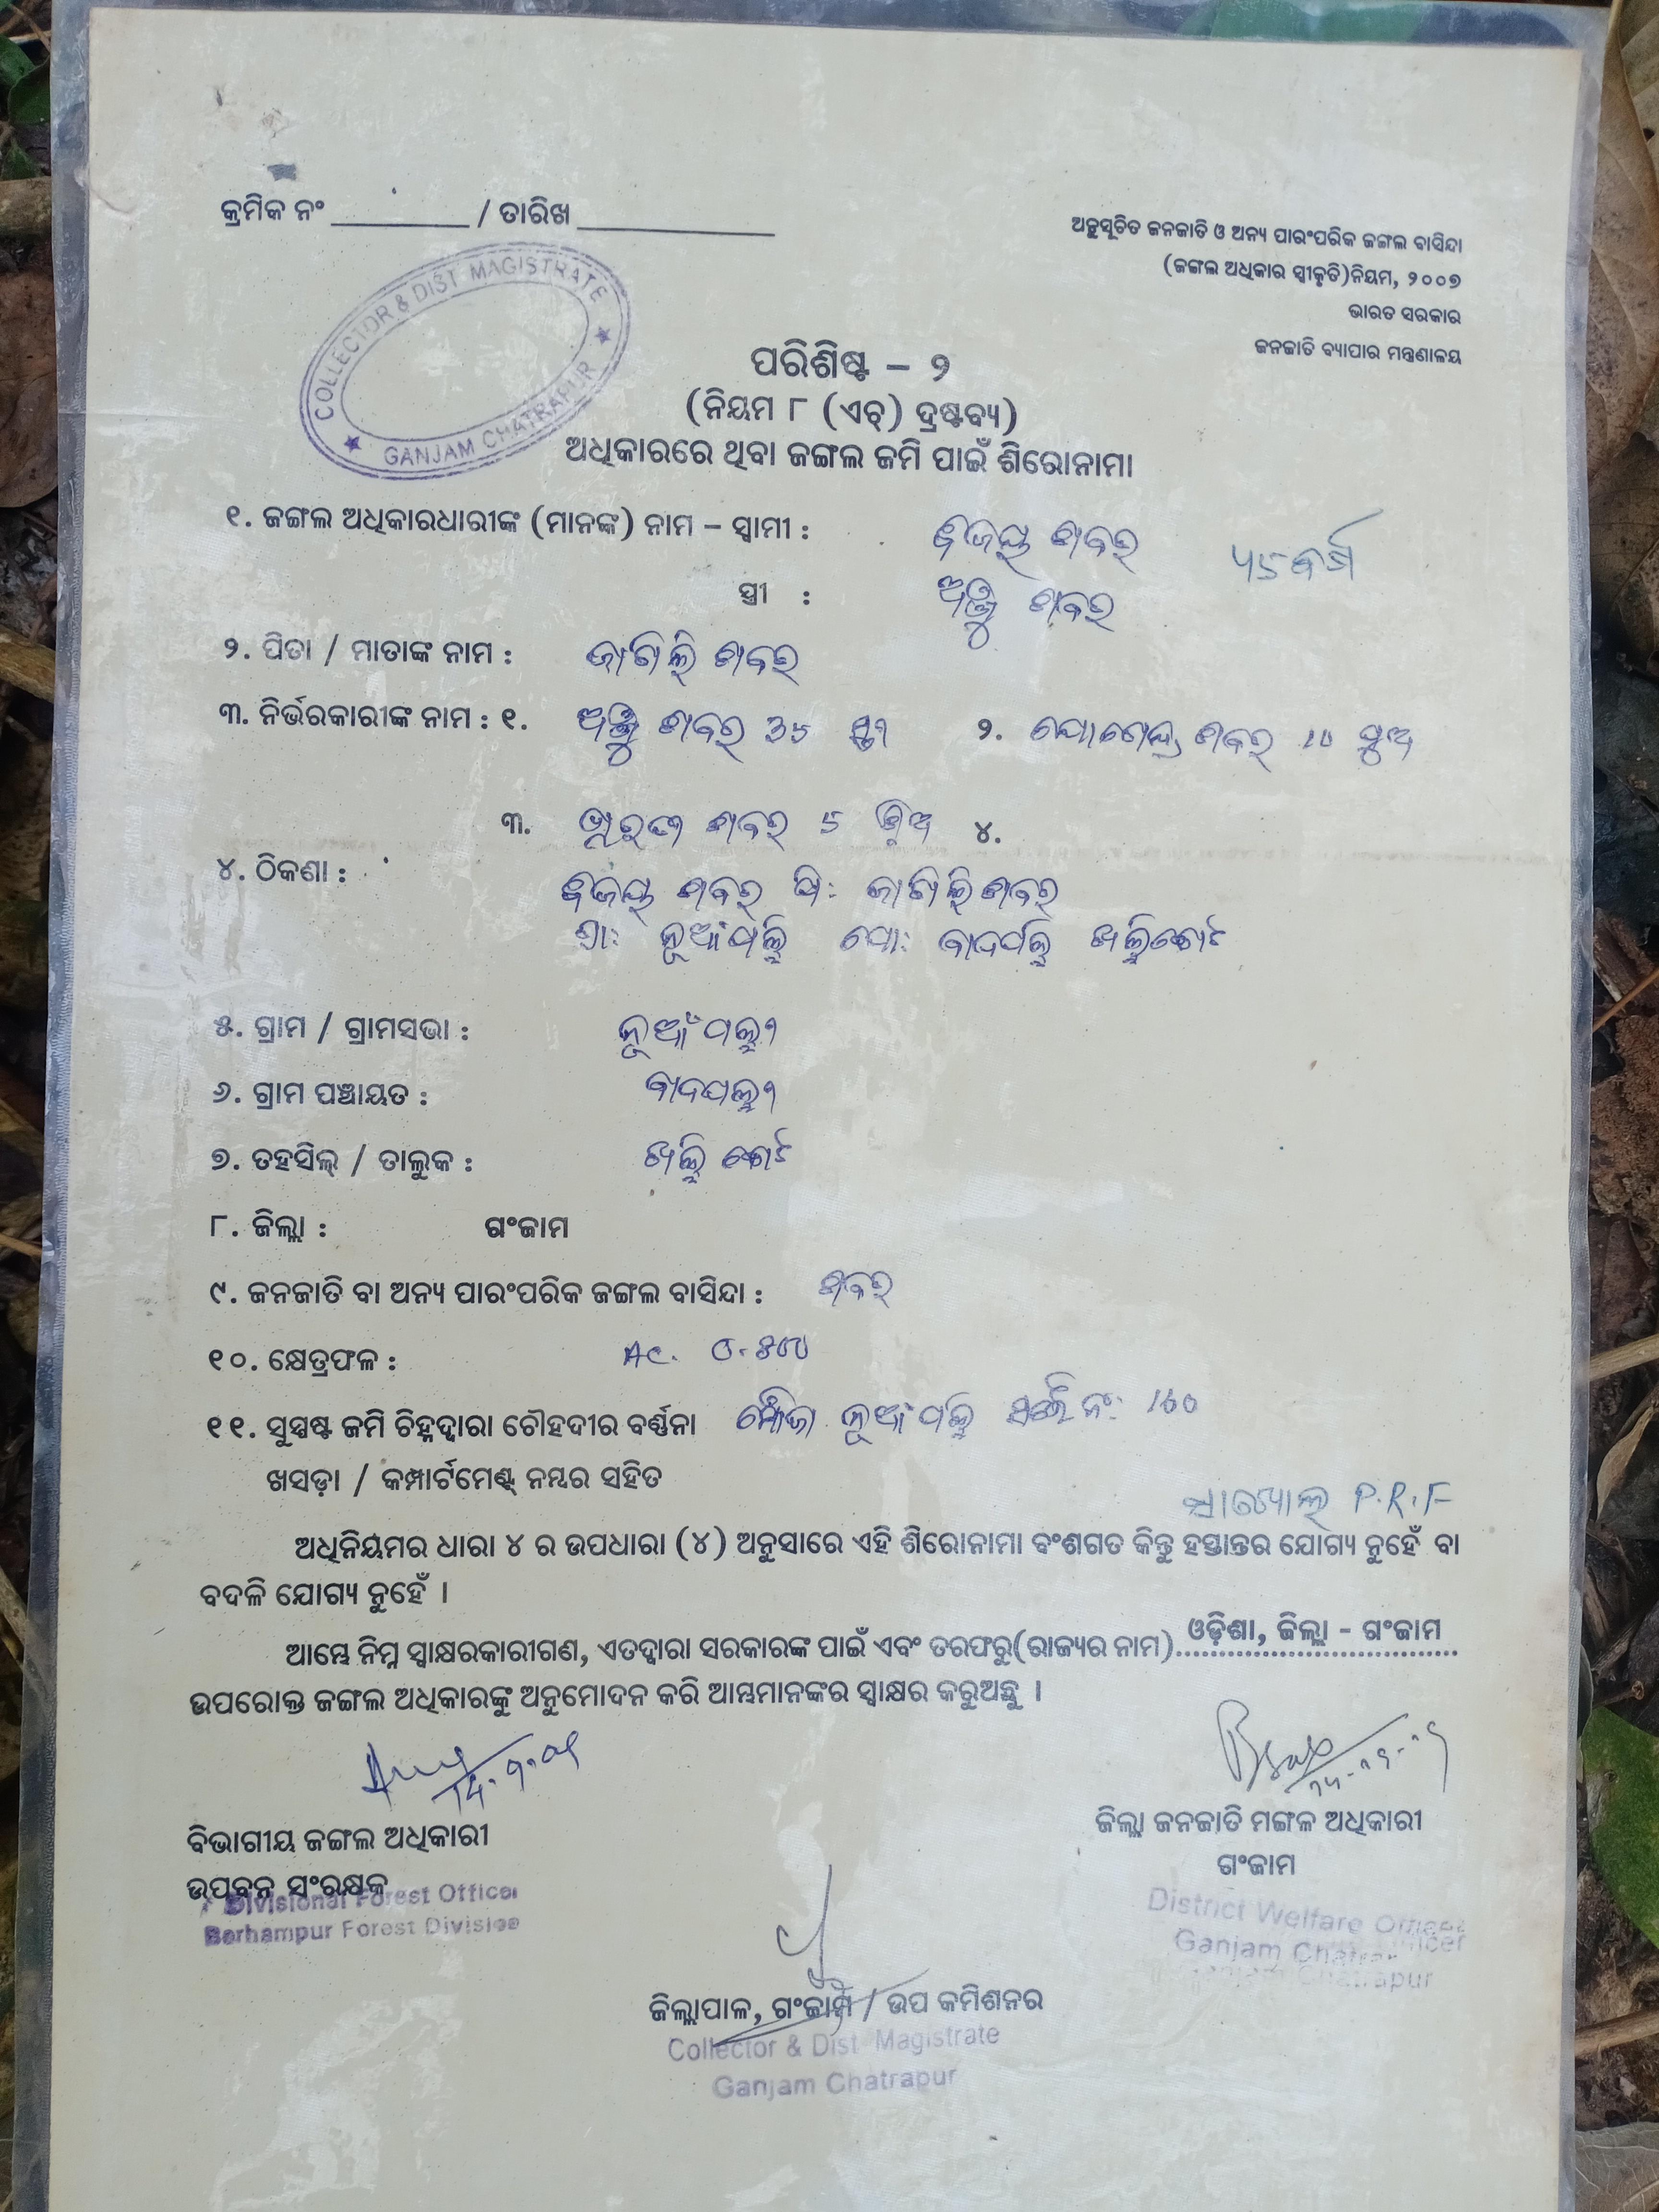 କ୍ରମିକ ନଂ ________ / ତାରିଖ ____________
ଅନୁସୂଚିତ ଜନଜାତି ଓ ଅନ୍ୟ ପାରଂପରିକ ଜଙ୍ଗଲ ବାସିନ୍ଦା
(ଜଙ୍ଗଲ ଅଧିକାର ସ୍ୱୀକୃତି)ନିୟମ, ୨୦୦୭
ଭାରତ ସରକାର
ଜନଜାତି ବ୍ୟାପାର ମନ୍ତ୍ରଣାଳୟ
COLLECTOR & DIST MAGISTRATE
GANJAM CHATRAPUR
ପରିଶିଷ୍ଟ – ୨
(ନିୟମ ୮ (ଏଚ୍) ଦ୍ରଷ୍ଟବ୍ୟ)
ଅଧିକାରରେ ଥିବା ଜଙ୍ଗଲ ଜମି ପାଇଁ ଶିରୋନାମା
୧. ଜଙ୍ଗଲ ଅଧିକାରଧାରୀଙ୍କ (ମାନଙ୍କ) ନାମ – ସ୍ୱାମୀ : ବିଜୟ ଶବର ୪୫ ବର୍ଷ
ସ୍ତ୍ରୀ : ଅଞ୍ଜୁ ଶବର
୨. ପିତା / ମାତାଙ୍କ ନାମ : ଜାଗିଲି ଶବର
୩. ନିର୍ଭରକାରୀଙ୍କ ନାମ : ୧. ଅଞ୍ଜୁ ଶବର 35 ସ୍ତ୍ରୀ ୨. ଯୋଗେନ୍ଦ୍ର ଶବର 10 ପୁଅ
୩. ଶବର 5 ଝିଅ ୪.
୪. ଠିକଣା : ବିଜୟ ଶବର ପି: ଜାଗିଲି ଶବର
ଗ୍ରା: ନୂଆଁପଲ୍ଲି ପୋ: ବାଦପଲ୍ଲି ଖଲ୍ଲିକୋଟ
୫. ଗ୍ରାମ / ଗ୍ରାମସଭା : ନୂଆଁପଲ୍ଲୀ
୬. ଗ୍ରାମ ପଞ୍ଚାୟତ : ବାଦପଲ୍ଲୀ
୭. ତହସିଲ୍ / ତାଲୁକ : ଖଲ୍ଲିକୋଟ
୮. ଜିଲ୍ଲା : ଗଂଜାମ
୯. ଜନଜାତି ବା ଅନ୍ୟ ପାରଂପରିକ ଜଙ୍ଗଲ ବାସିନ୍ଦା : ଶବର
୧୦. କ୍ଷେତ୍ରଫଳ : AC. 0.
୧୧. ସୁସ୍ପଷ୍ଟ ଜମି ଚିହ୍ନଦ୍ୱାରା ଚୌହଦୀର ବର୍ଣ୍ଣନା ମୌଜା ନୂଆଁପଲ୍ଲି ନଂ: 160
ଖସଡ଼ା / କମ୍ପାର୍ଟମେଣ୍ଟ୍ ନମ୍ବର ସହିତ
P.R.F
ଅଧିନିୟମର ଧାରା ୪ ର ଉପଧାରା (୪) ଅନୁସାରେ ଏହି ଶିରୋନାମା ବଂଶଗତ କିନ୍ତୁ ହସ୍ତାନ୍ତର ଯୋଗ୍ୟ ନୁହେଁ ବା
ବଦଳି ଯୋଗ୍ୟ ନୁହେଁ ।
ଆମ୍ଭେ ନିମ୍ନ ସ୍ୱାକ୍ଷରକାରୀଗଣ, ଏତଦ୍ୱାରା ସରକାରଙ୍କ ପାଇଁ ଏବଂ ତରଫରୁ(ରାଜ୍ୟର ନାମ) ଓଡ଼ିଶା, ଜିଲ୍ଲା - ଗଂଜାମ
ଉପରୋକ୍ତ ଜଙ୍ଗଲ ଅଧିକାରଙ୍କୁ ଅନୁମୋଦନ କରି ଆମ୍ଭମାନଙ୍କର ସ୍ୱାକ୍ଷର କରୁଅଛୁ ।
ବିଭାଗୀୟ ଜଙ୍ଗଲ ଅଧିକାରୀ
ଉପବନ ସଂରକ୍ଷକ
Divisional Forest Officer
Berhampur Forest Division
ଜିଲ୍ଲା ଜନଜାତି ମଙ୍ଗଳ ଅଧିକାରୀ
ଗଂଜାମ
District Welfare Officer
Ganjam Chatrapur
ଜିଲ୍ଲାପାଳ, ଗଂଜାମ / ଉପ କମିଶନର
Collector & Dist Magistrate
Ganjam Chatrapur